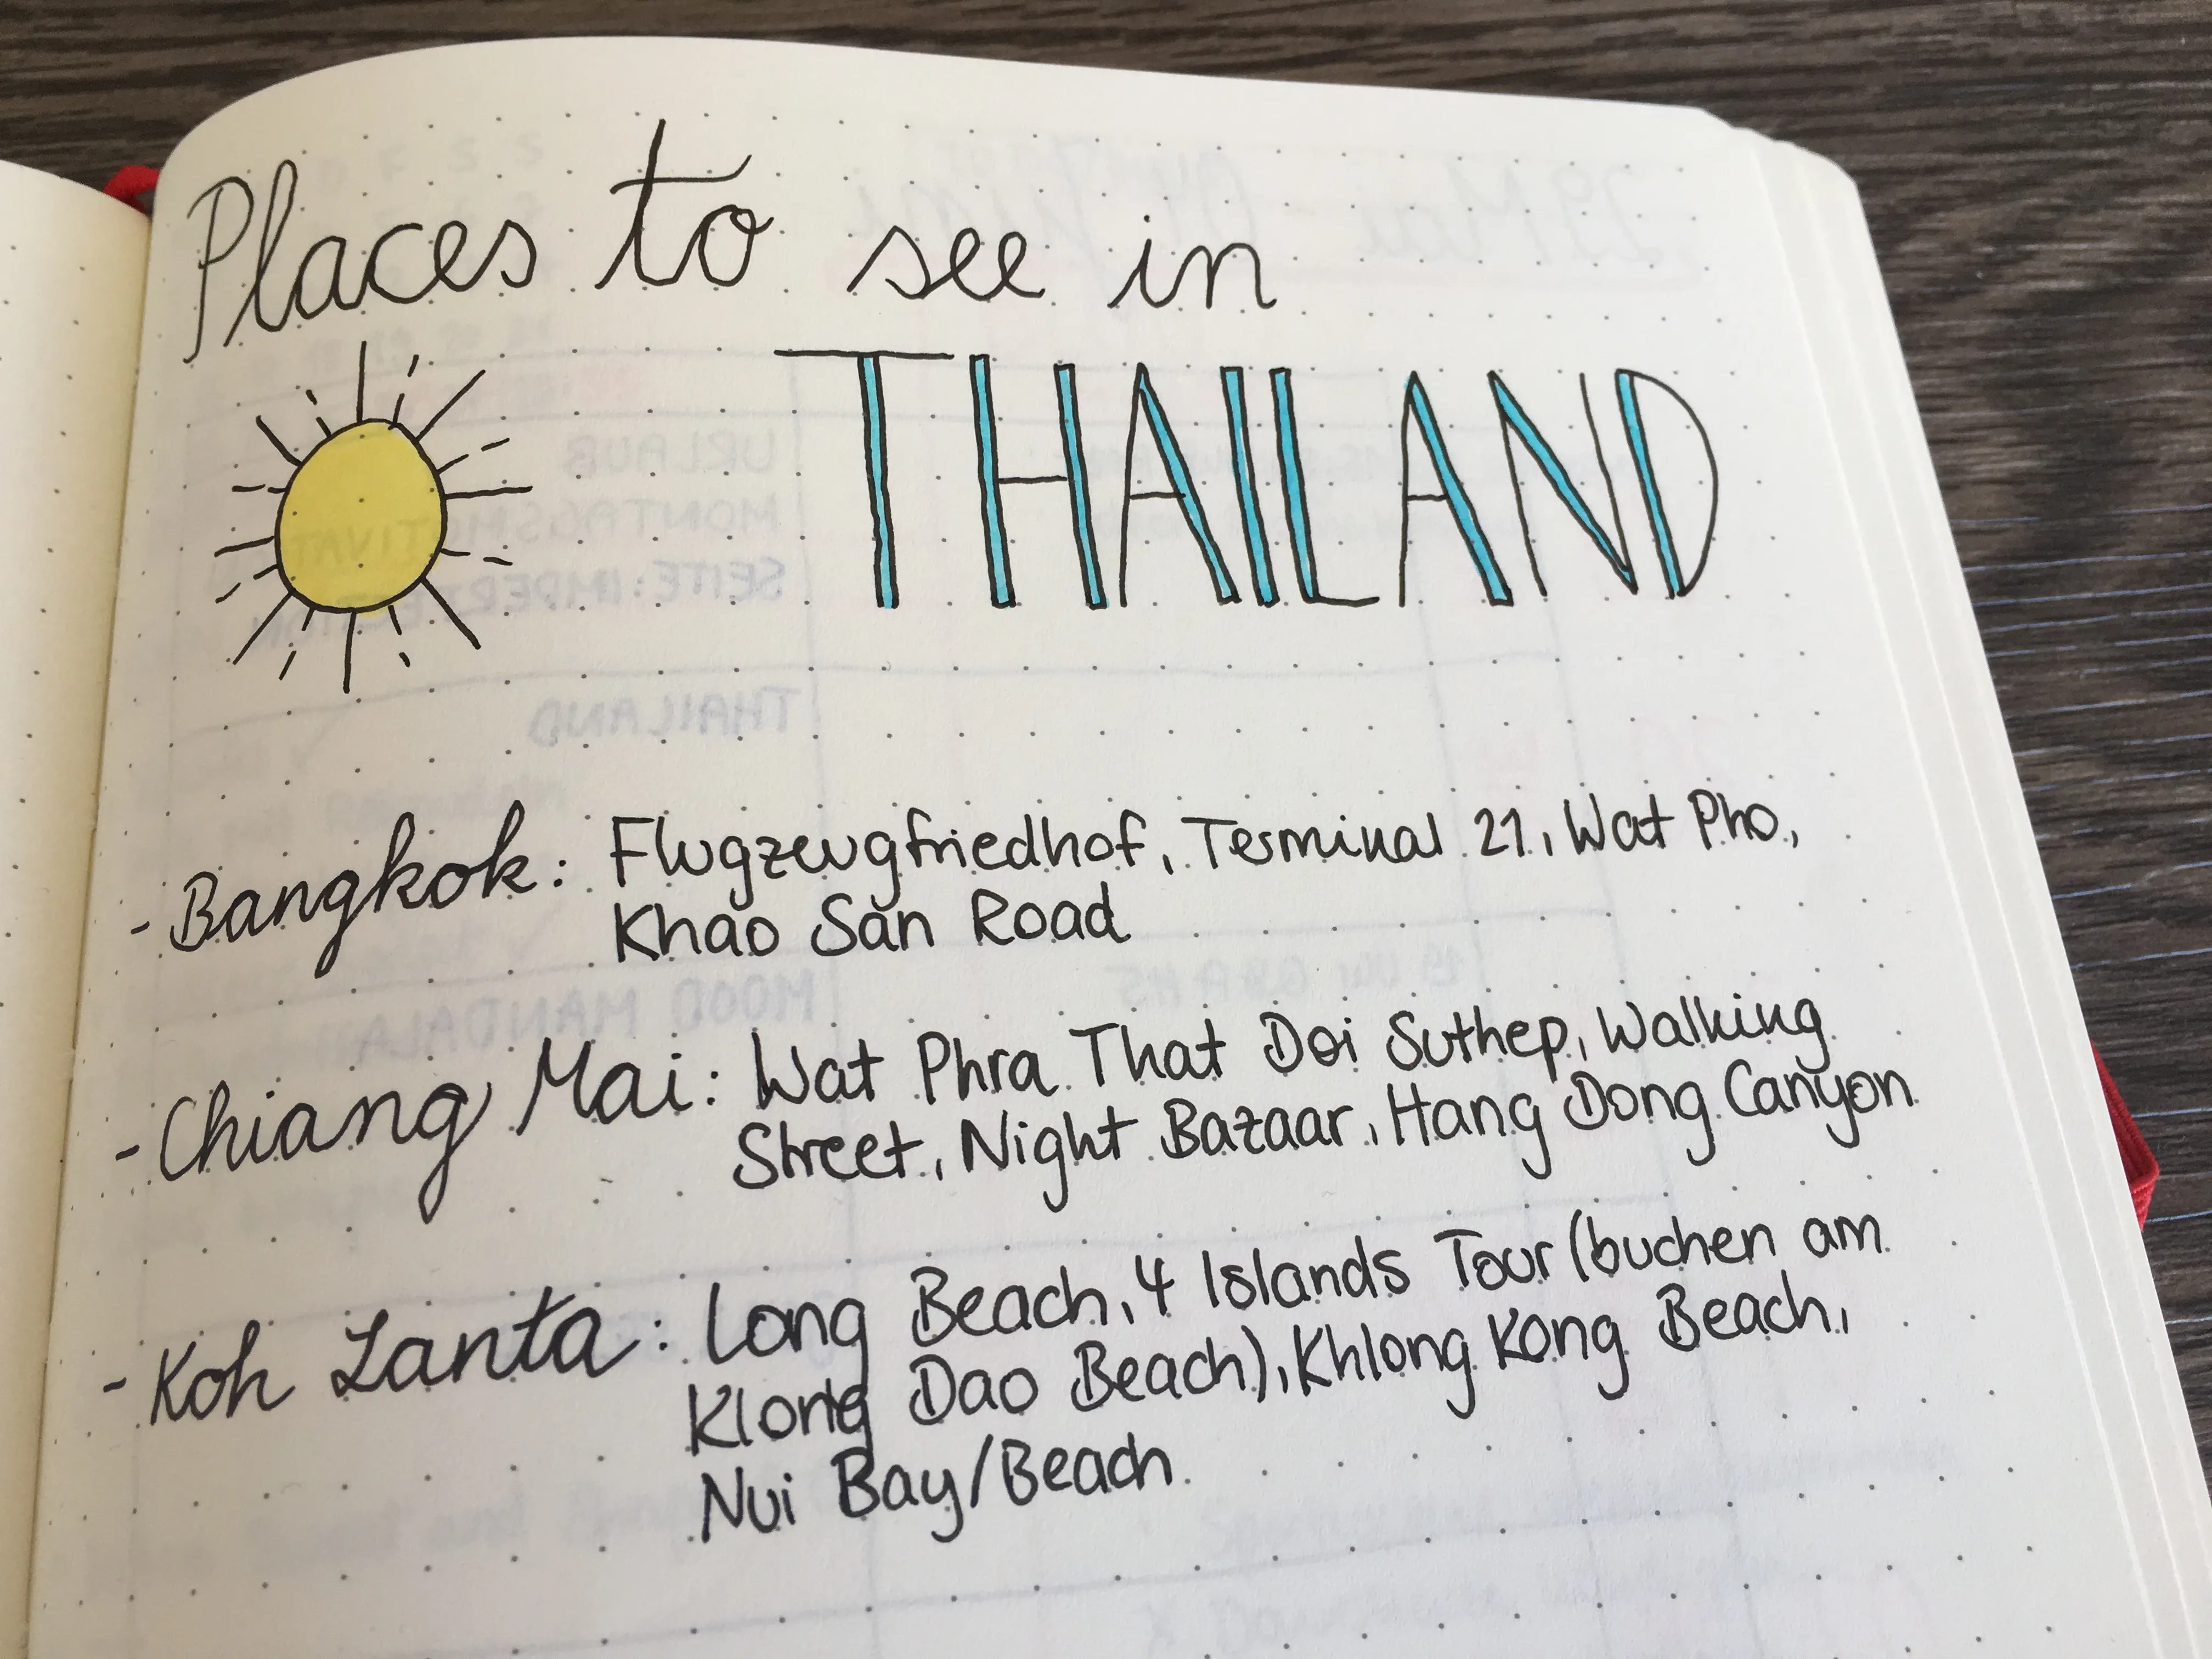 Places to see in
THAILAND
- Bangkok: Flugzeugfriedhof, Terminal 21, Wat Pho,
Khao San Road
- Chiang Mai: Wat Phra That Doi Suthep, Walking
Street, Night Bazaar, Hang Dong Canyon
- Koh Lanta: Long Beach, 4 Islands Tour (buchen am
Klong Dao Beach), Khlong Kong Beach,
Nui Bay/Beach